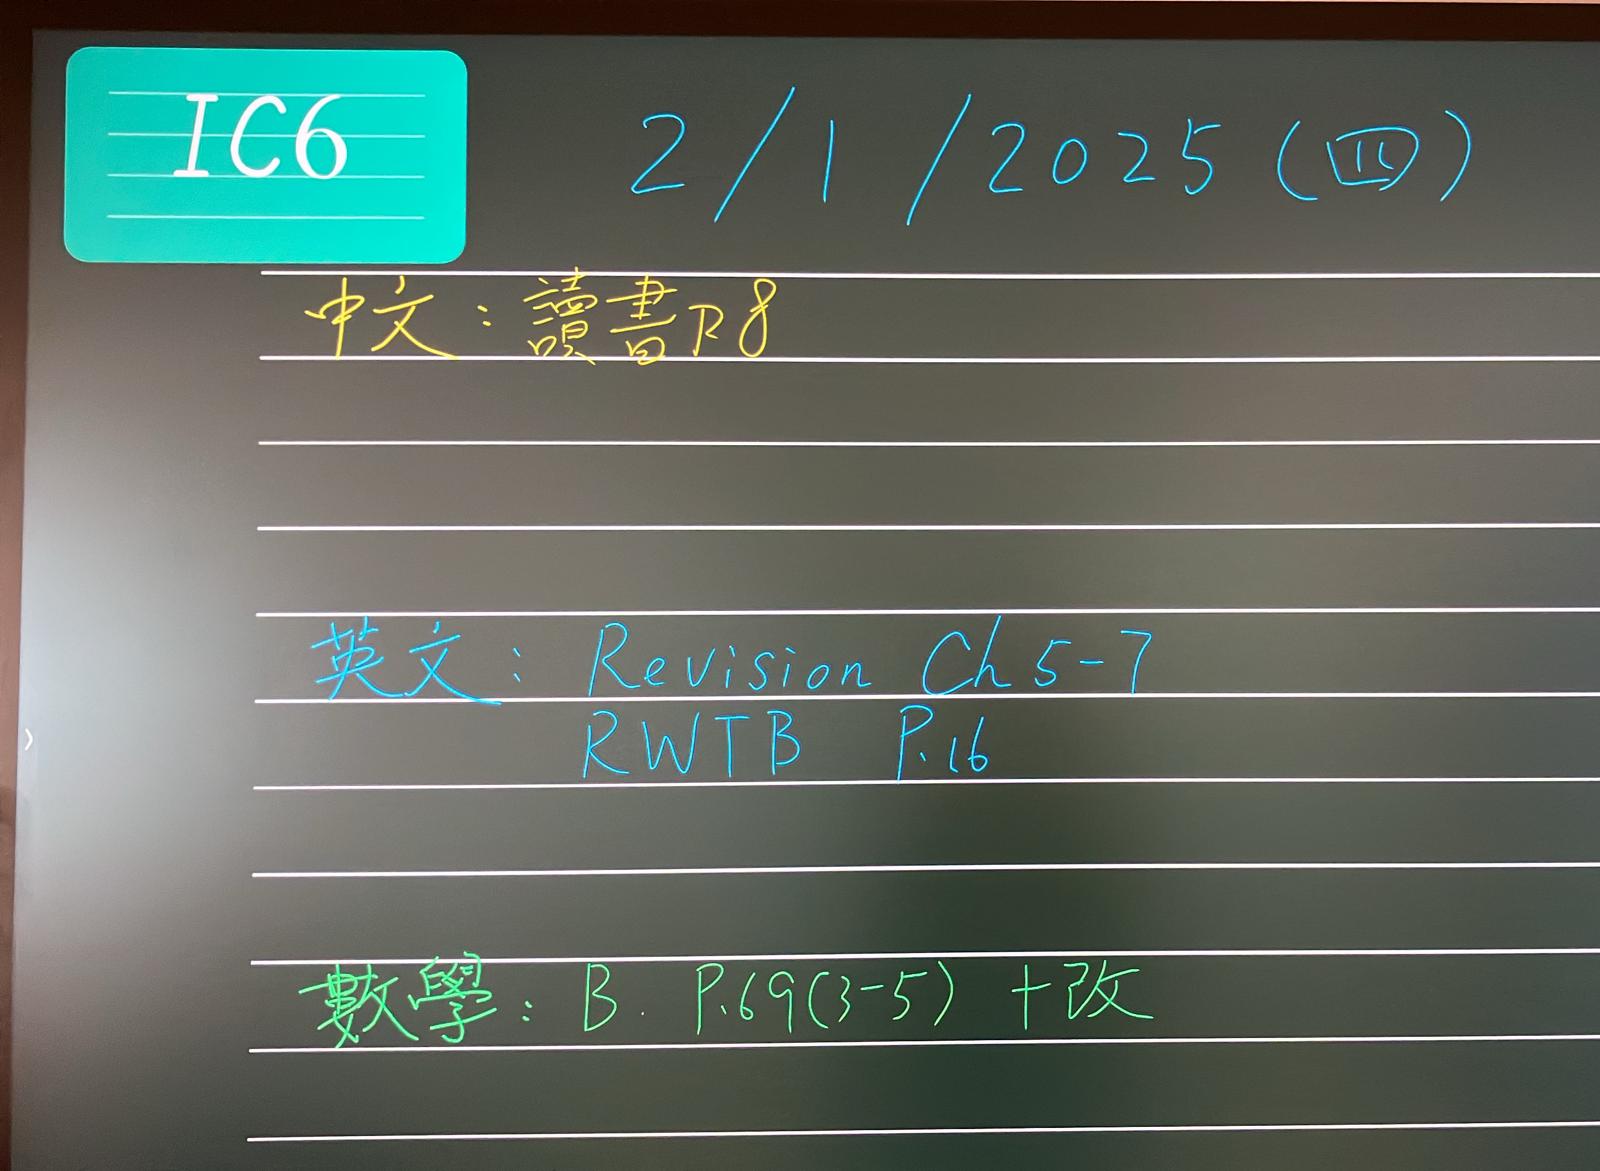 IC6
2/1/2025 (四)
中文：讀書R8
英文：Revision Ch 5-7
RWTB P.16
數學：B. P.69(3-5) +改